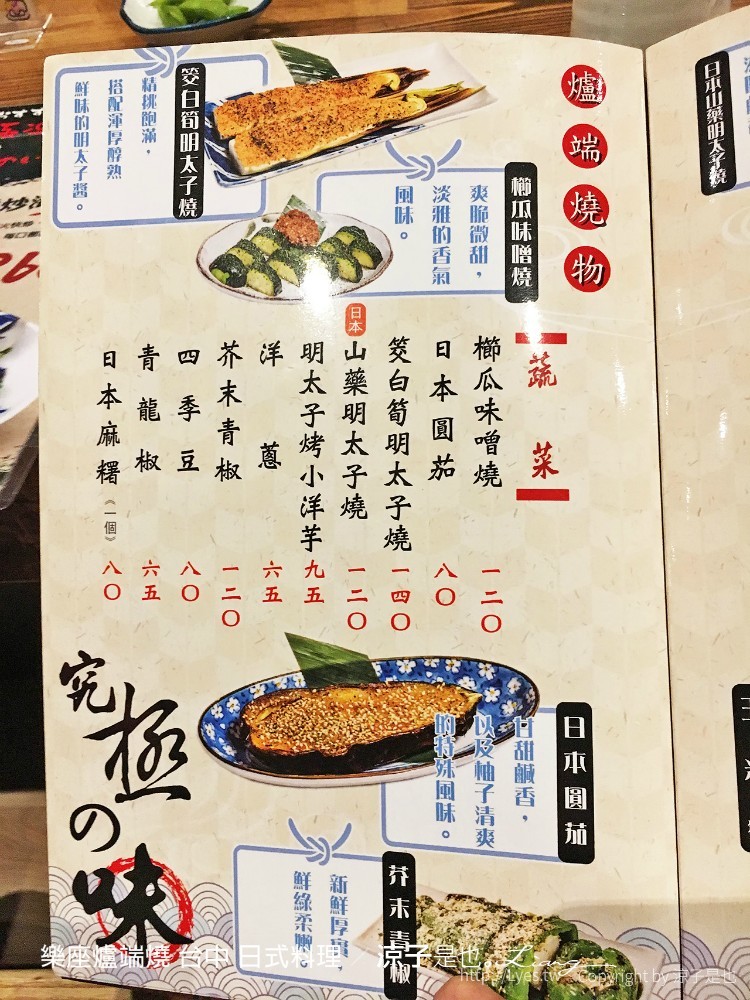 爐端燒物
筊白筍明太子燒
精挑飽滿，
搭配渾厚醇熟
鮮味的明太子醬。
櫛瓜味噌燒
爽脆微甜，
淡雅的香氣
風味。
蔬菜
櫛瓜味噌燒 一二〇
日本圓茄 八〇
筊白筍明太子燒 一四〇
日本山藥明太子燒 一二〇
明太子烤小洋芋 九五
洋蔥 六五
芥末青椒 一二〇
四季豆 八〇
青龍椒 六五
日本麻糬《一個》 八〇
日本圓茄
甘甜鹹香，
以及柚子清爽
的特殊風味。
芥末青椒
新鮮厚實，
鮮綠柔嫩
究極の味
日本山藥明太子燒
樂座爐端燒 台中 日式料理 / 涼子是也
http://Lyes.tw Copyright by 涼子是也